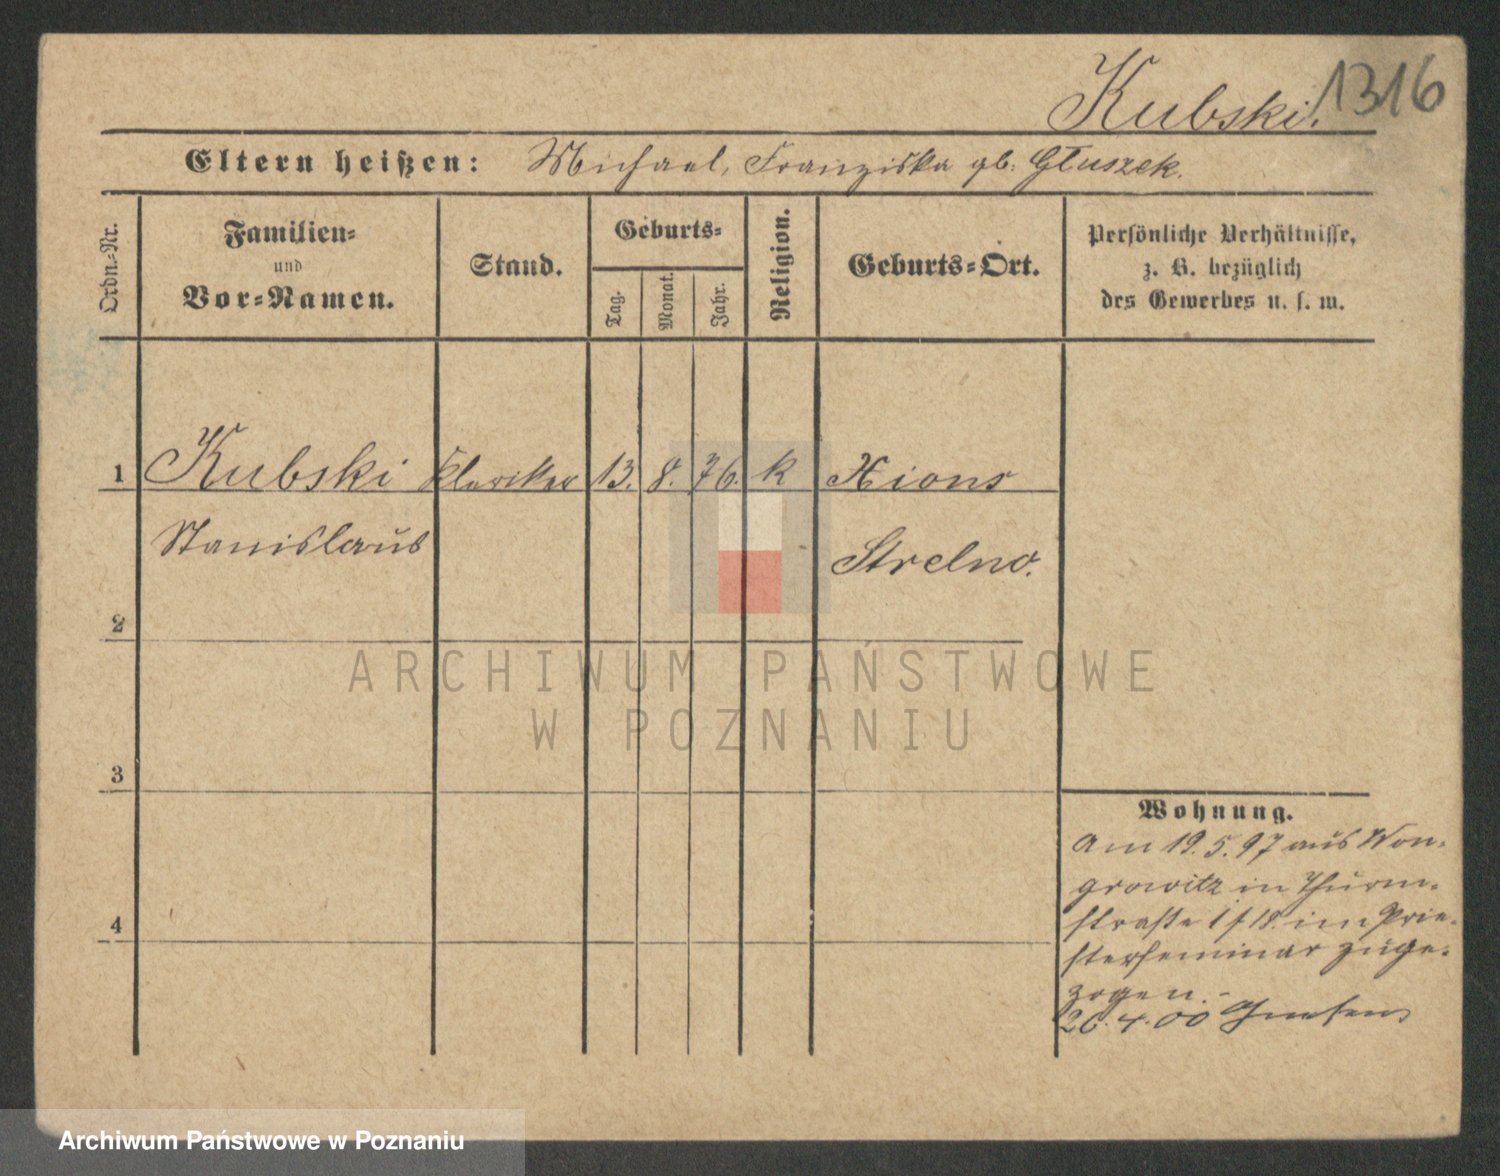 Kubski. 1316
Eltern heißen: Michael, Franziska gb. Głuszek.
Ordn.-Nr.
Familien- und Vor-Namen.
Stand.
Geburts-
Tag.
Monat.
Jahr.
Religion.
Geburts-Ort.
Persönliche Verhältnisse,
z. B. bezüglich
des Gewerbes u. s. w.
1 Kubski Kleriker 13. 8. 76. k Xions
Stanislaus Strelno.
2
3
4
Wohnung.
Am 19.5.97 aus Won-
growitz in Thurm-
straße im Prie-
sterseminar zuge-
zogen.-
26.4.00 Gnesen
ARCHIWUM PAŃSTWOWE
W POZNANIU
Archiwum Państwowe w Poznaniu